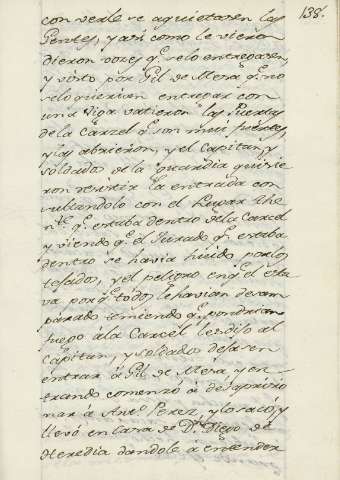 138.
con verle se aquietasen las
Gentes, y así como le vieron
dieron voces q.e se lo entregasen,
y visto por Gil de Mesa q.e no
se lo querian entregar con
una Viga vatieron las Puertas
de la Carcel q.e son mui fuertes,
y las abrieron, y el Capitan, y
soldados de la guardia quisie
ron resistir la entrada con
sultandolo con el Lugar the
n.te q.e estaba dentro de la Carcel
y viendo q.e el Jurado q.e estaba
dentro se havia huido por los
tejados, y el peligro en q.e el esta
va por q.e todos le havian desam
parado temiendo q.e pondrian
fuego á la Carcel les dijo al
Capitan, y soldados dejasen
entrar á Gil de Mesa y en-
trando comenzó á desaprisio
nar á Ant.o Perez, y lo sacó, y
llevó en casa de D.n Diego de
Heredia dandole á entender